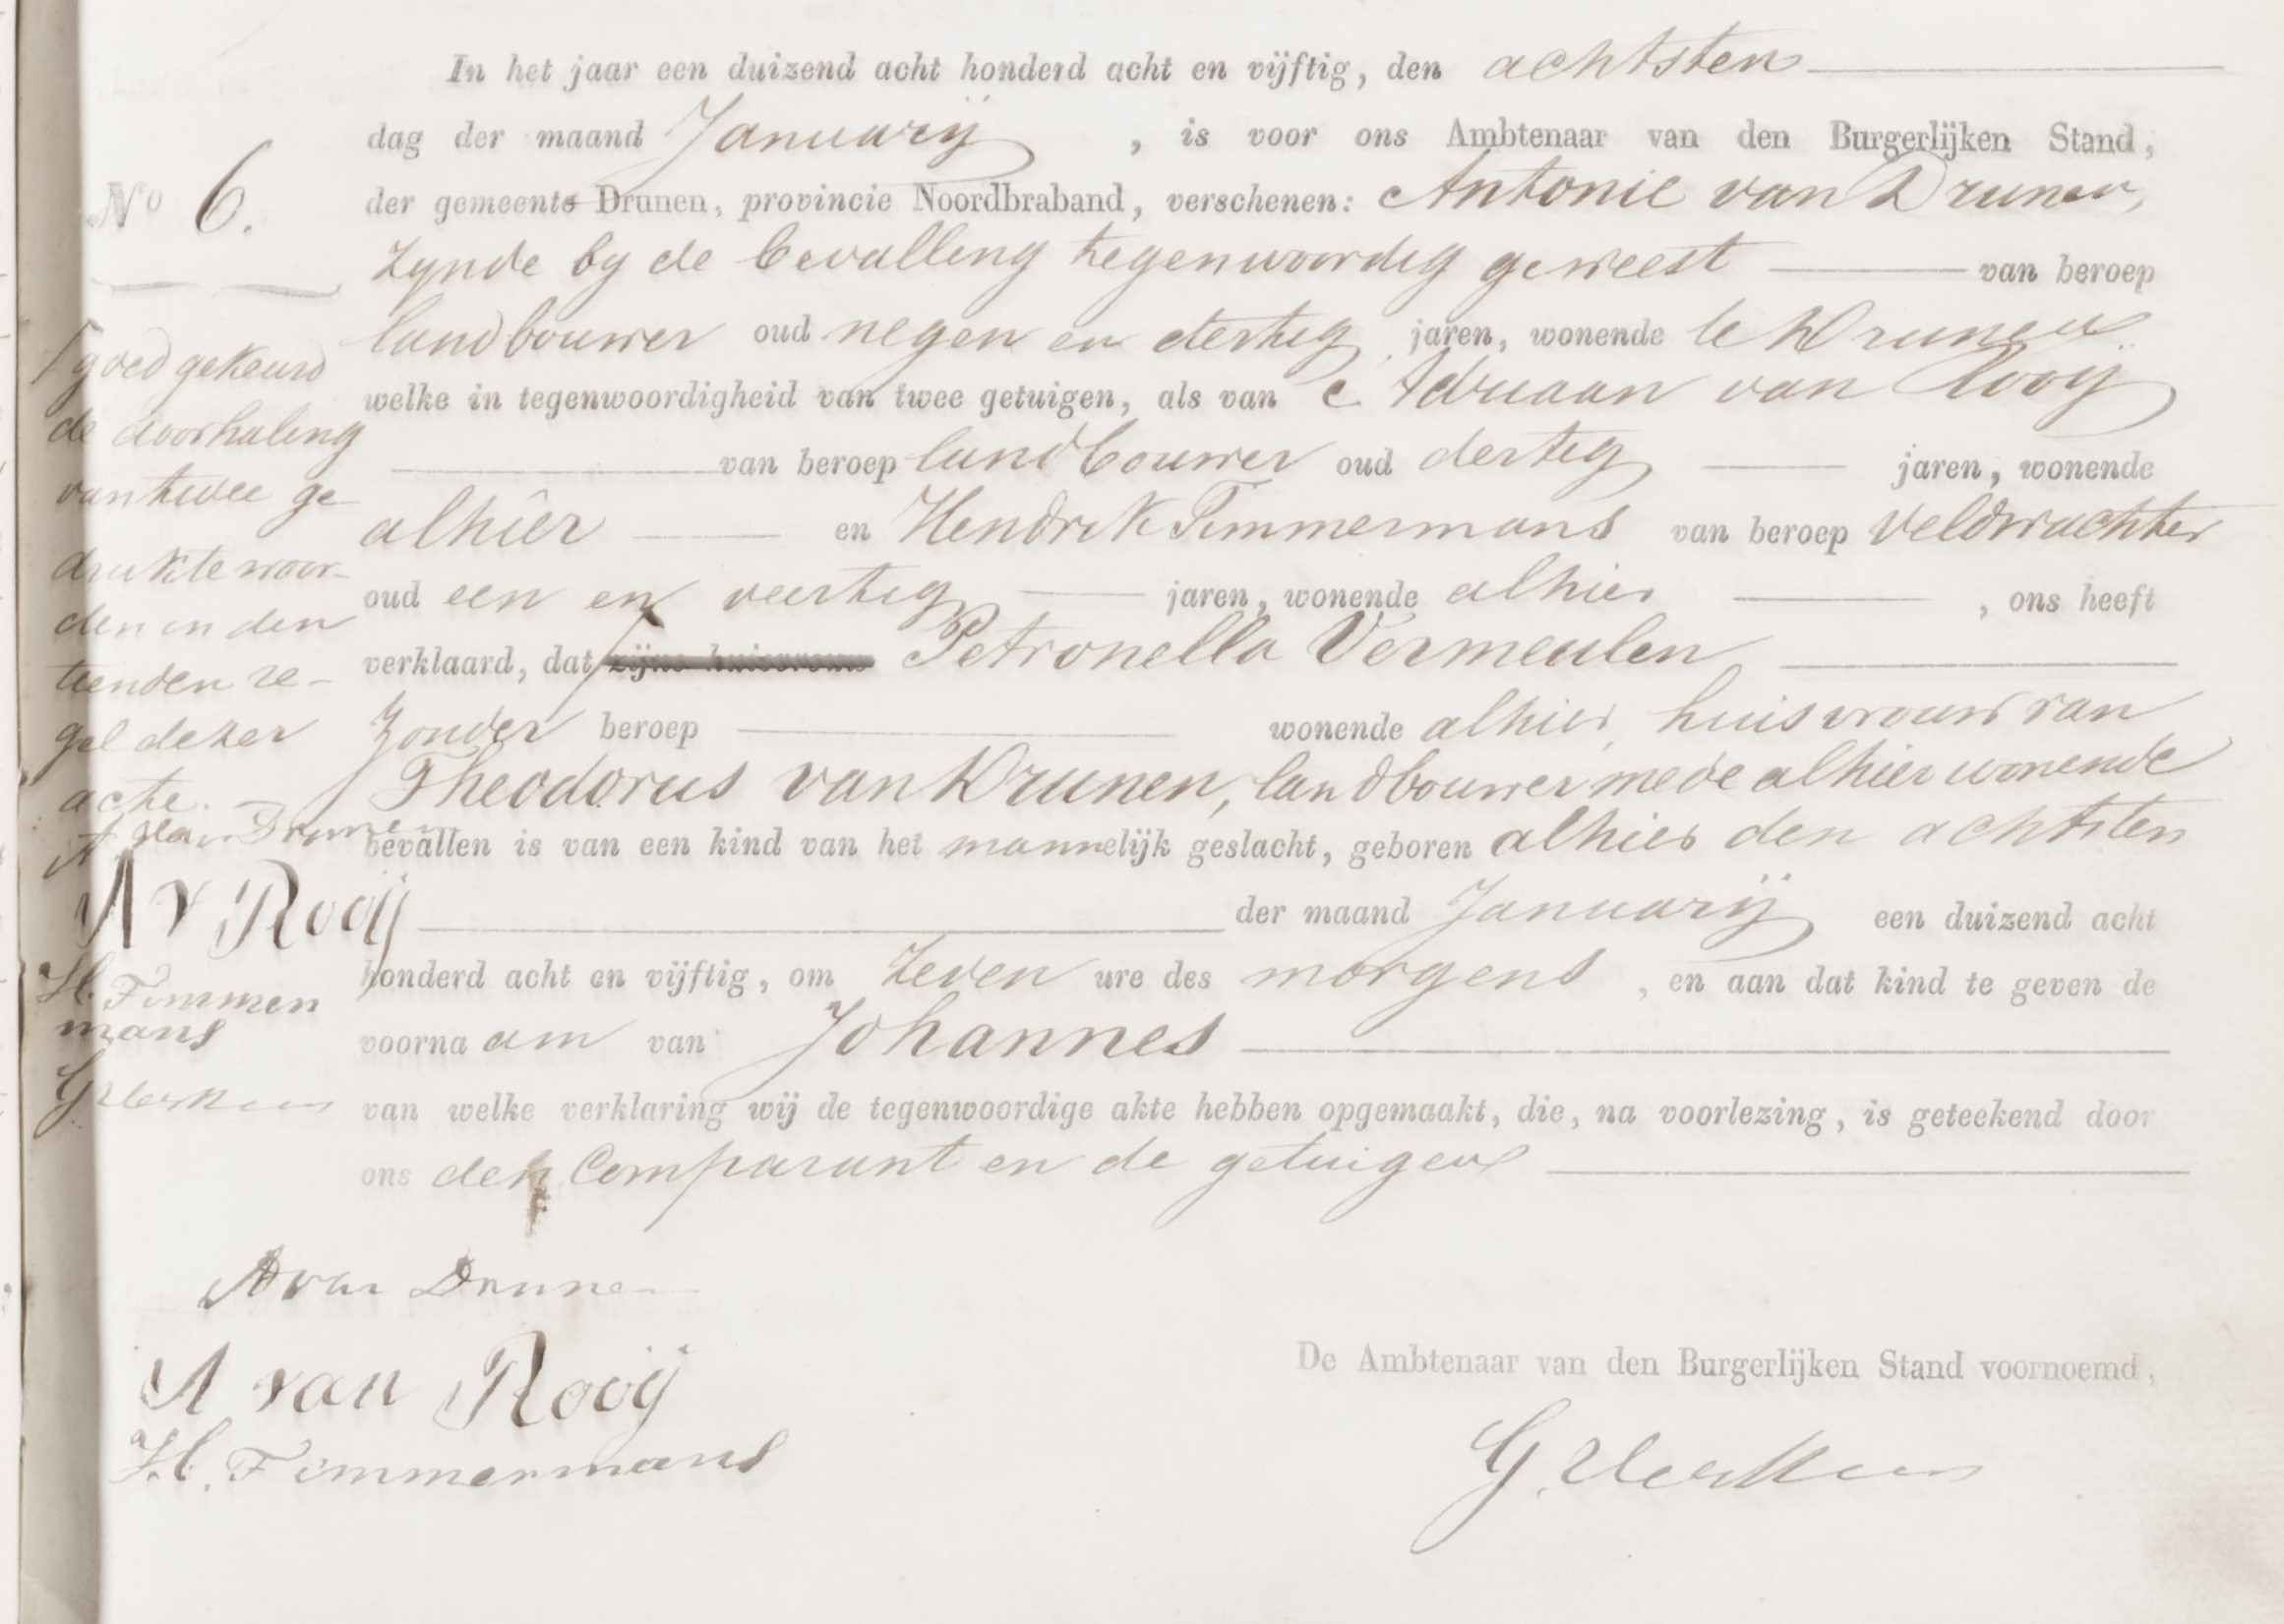 In het jaar een duizend acht honderd acht en vijftig, den achtsten
dag der maand Januarij , is voor ons Ambtenaar van den Burgerlijken Stand,
der gemeente Drunen, provincie Noordbraband, verschenen: Antonie van Drunen,
zynde by de bevalling tegenwoordig geweest van beroep
landbouwer oud negen en dertig jaren, wonende te Drunen
welke in tegenwoordigheid van twee getuigen, als van Adriaan van Rooij
van beroep landbouwer oud dertig jaren, wonende
alhier en Hendrik Timmermans van beroep veldwachter
oud een en veertig jaren, wonende alhier , ons heeft
verklaard, dat zijne huisvrouw Petronella Vermeulen
zonder beroep wonende alhier, huisvrouw van
Theodorus van Drunen, landbouwer mede alhier wonende
bevallen is van een kind van het mannelijk geslacht, geboren alhier den achtsten
der maand Januarij een duizend acht
honderd acht en vijftig, om zeven ure des morgens , en aan dat kind te geven de
voornaam van Johannes
van welke verklaring wij de tegenwoordige akte hebben opgemaakt, die, na voorlezing, is geteekend door
ons den Comparant en de getuigen
No 6.
goedgekeurd
de doorhaling
van twee ge-
drukte woor-
den in den
tienden re-
gel dezer
acte.
A van Drunen
A v Rooij
H. Timmer
mans
A van Drunen
A van Rooij
H. Timmermans
De Ambtenaar van den Burgerlijken Stand voornoemd,